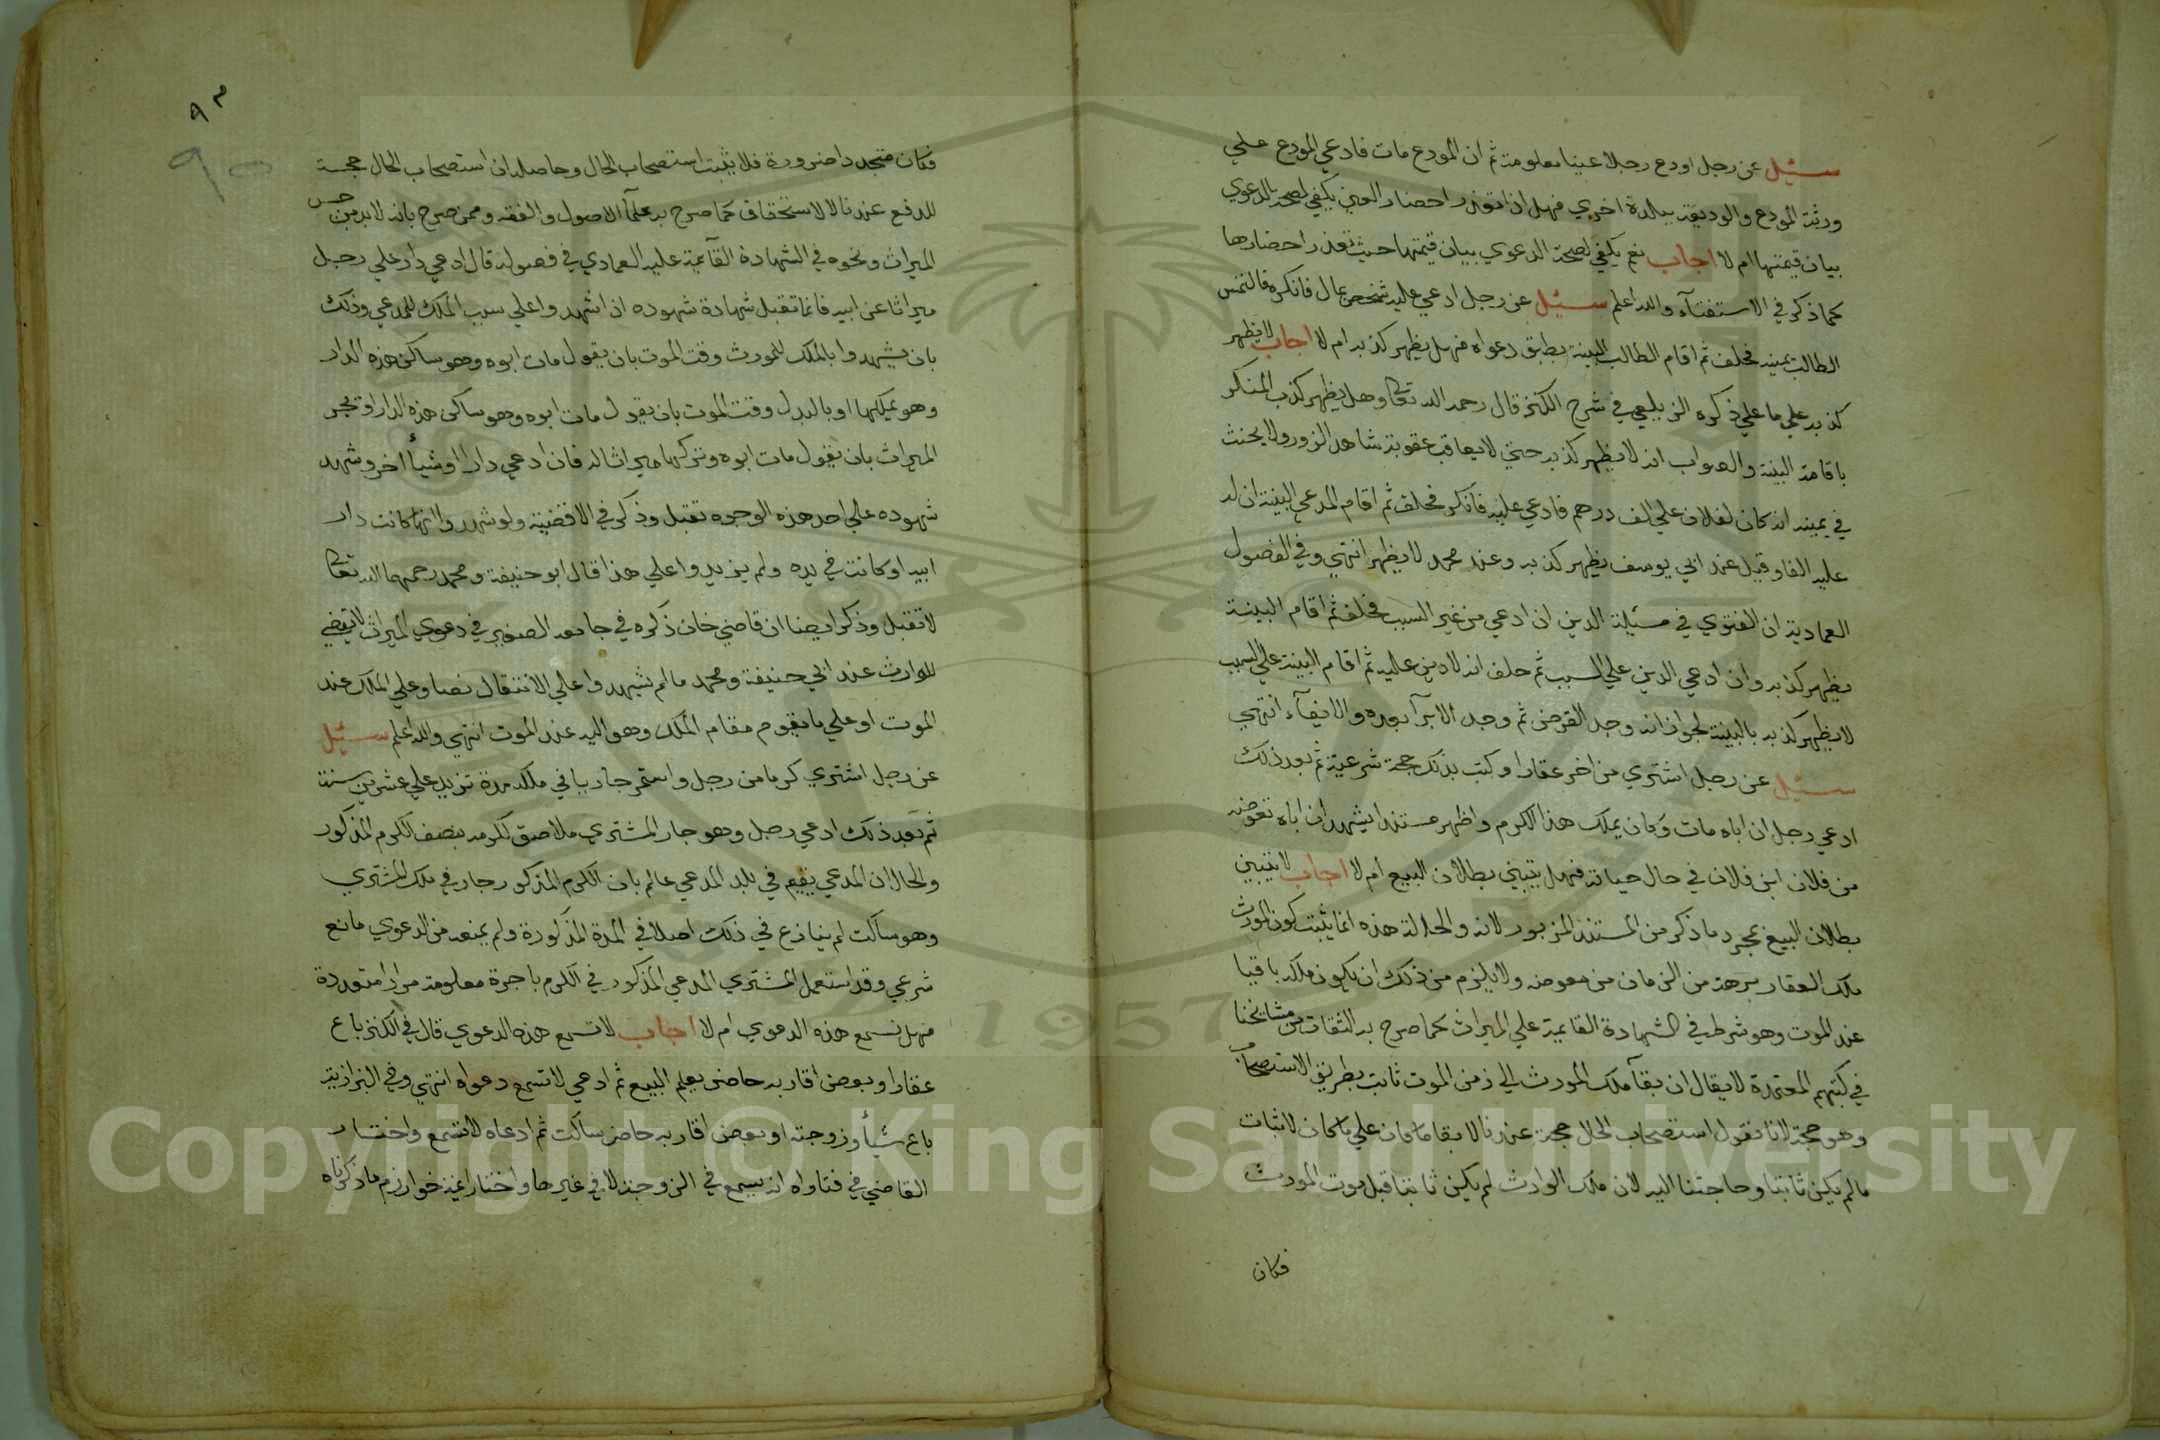 سئيل عن رجل اودع رجلا عينا معلومة ثم ان المودع مات فادعي المودع علي
ورثة المودع والوديعة ببلدة اخري فهل اذا تعذر احضار العين يكفي لصحة الدعوي
بيان قيمتها ام لا اجاب نعم يكفي لصحة الدعوي بيان قيمتها حيث تعذر احضارها
كما ذكر في الاستفتآء والله اعلم سئيل عن رجل ادعي عليه شخص بمال فانكره فالتمس
الطالب يمينه فحلف ثم اقام الطالب البينة بطبق دعواه فهل يظهر كذبه ام لا اجاب لا يظهر
كذبه علي ما علي ذكره الزيلعي في شرح الكنز قال رحمه الله تعالى وهل يظهر كذب المنكر
باقامة البينة والصواب انه لا يظهر كذبه حتي لا يعاقب عقوبة شاهد الزور ولا يحنث
في يمينه انه كان لفلان علي الف درهم فادعي عليه فانكر فحلف ثم اقام المدعي البينة ان له
عليه الفا وقيل عند ابي يوسف يظهر كذبه وعند محمد لا يظهر انتهي وفي الفصول
العمادية ان الفتوي في مسئلة الدين ان ادعي من غير السبب فحلف ثم اقام البينة
يظهر كذبه وان ادعي الدين علي السبب ثم حلف انه لا دين عليه ثم اقام البينة علي السبب
لا يظهر كذبه بالبينة لجواز انه وجد القرض ثم وجد الابرآ بعده والايفآء انتهي
سئيل عن رجل اشتري من اخر عقارا وكتب بذلك حجة شرعية ثم بعد ذلك
ادعي رجل ان اباه مات وكان يملك هذا الكرم واظهر مستندا يشهد ان اباه تعوضه
من فلان ابن فلان في حال حياته فهل يتبين بطلان البيع ام لا اجاب لا يتبين
بطلان البيع بمجرد ما ذكر من المستند المزبور لانه والحالة هذه انما يثبت كون المورث
ملك العقار برهة من الزمان من معوضه ولا يلزم من ذلك ان يكون ملكه باقيا
عند الموت وهو شرط في الشهادة القايمة علي الميراث كما صرح به الثقات من مشايخنا
في كتبهم المعتمدة لا يقال ان بقآ ملك المورث الي زمن الموت ثابت بطريق الاستصحاب
وهو حجة لانا نقول استصحاب الحال حجة عندنا لابقا ما كان علي ما كان لا لاثبات
ما لم يكن ثابتا وحاجتنا اليه لان ملك الوارث لم يكن ثابتا قبل موت المورث
فكان
٩٣
فكان متجددا ضرورة فلا يثبت استصحاب الحال وحاصله ان استصحاب الحال حجة
للدفع عندنا لا للاستحقاق كما صرح به علمآ الاصول والفقه وممن صرح بانه لابد من جر
الميراث ونحوه في الشهادة القآيمة عليه العمادي في فصوله قال ادعي دار علي رجل
ميراثا عن ابيه فانما تقبل شهادة شهوده اذا شهدوا علي سبب الملك للمدعي وذلك
بان يشهدوا بالملك للمورث وقت الموت بان يقول مات ابوه وهو ساكن هذه الدار
وهو يملكها او باليد وقت الموت بان يقول مات ابوه وهو ساكن هذه الدار او بجر
الميراث بان يقول مات ابوه وتركها ميراثا له فان ادعي دارا او شيأ اخر وشهد
شهوده علي احد هذه الوجوه تقبل وذكر في الاقضية ولو شهدوا انها كانت دار
ابيه او كانت في يده ولم يزيدوا علي هذا قال ابو حنيفة ومحمد رحمهما الله تعالى
لا تقبل وذكر ايضا ان قاضي خان ذكره في جامعه الصغير في دعوي الميراث لا يقضي
للوارث عند ابي حنيفة ومحمد ما لم يشهدوا علي الانتقال نصا وعلي الملك عند
الموت او علي ما يقوم مقام الملك وهو اليد عند الموت انتهي والله اعلم سئيل
عن رجل اشتري كرما من رجل واستمر جاريا في ملكه مدة تزيد علي عشرين سنة
ثم بعد ذلك ادعي رجل وهو جار المشتري ملاصق لكرمه بنصف الكرم المذكور
والحال ان المدعي يقيم في بلد المدعي عالم بان الكرم المذكور جار في ملك المشتري
وهو ساكت لم ينازع في ذلك اصلا في المدة المذكورة ولم يمنعه من الدعوي مانع
شرعي وقد استعمل المشتري المدعي المذكور في الكرم باجرة معلومة مرارا متعددة
فهل تسمع هذه الدعوي ام لا اجاب لا تسمع هذه الدعوي قال في الكنز باع
عقارا وبعض اقاربه حاضر يعلم البيع ثم ادعي لا تسمع دعواه انتهي وفي البزازية
باع شيأ وزوجته او بعض اقاربه حاضر ساكت ثم ادعاه لا تسمع واختار
القاضي في فتاواه انه يسمع في الزوجة لا في غيرها واختار ايمة خوارزم ما ذكرناه
Copyright © King Saud University
1957